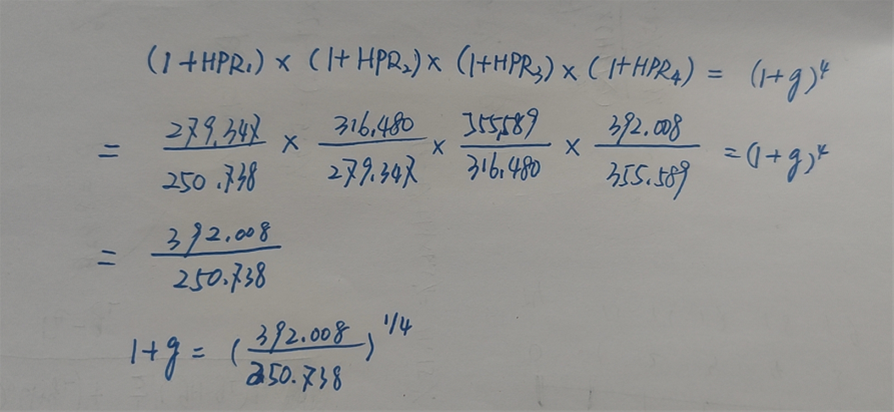 (1+HPR₁) × (1+HPR₂) × (1+HPR₃) × (1+HPR₄) = (1+g)⁴
= 279.347/250.738 × 316.480/279.347 × 355.589/316.480 × 392.008/355.589 = (1+g)⁴
= 392.008/250.738
1+g = (392.008/250.738)^1/4